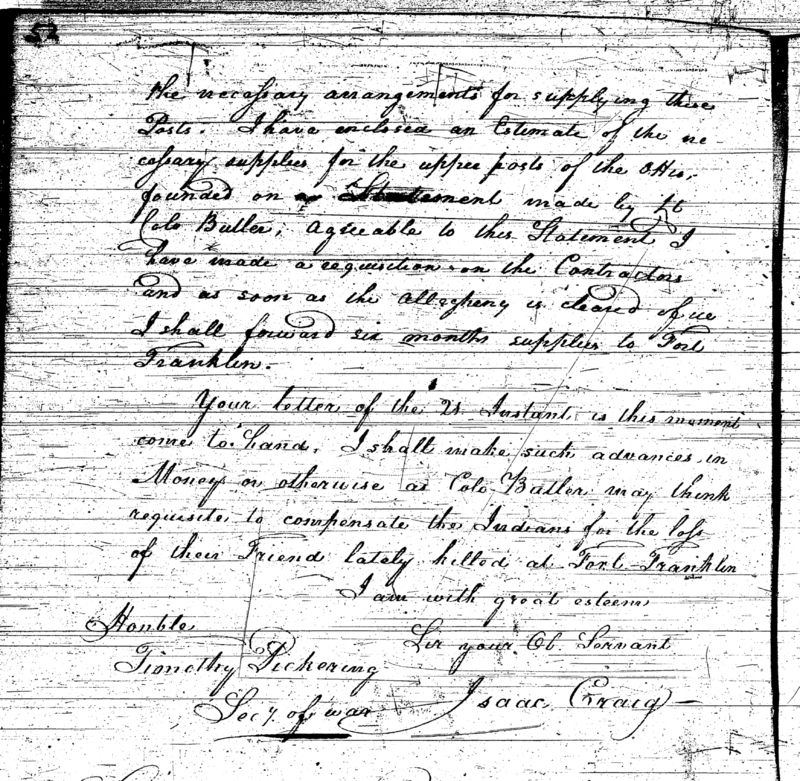 52
the necessary arrangements for supplying these
Posts. I have enclosed an Estimate of the ne
cessary supplies for the upper posts of the Ohio,
founded on a Statement made by Lt
Colo Butler, agreeable to this Statement I
have made a requisition on the Contractors
and as soon as the Allegheny is cleared of ice
I shall forward six months supplies to Fort
Franklin.
Your letter of the 21 Instant is this moment
come to hand. I shall make such advances in
Money or otherwise as Colo Butler may think
requisite to compensate the Indians for the loss
of their Friend lately killed at Fort Franklin
I am with great esteem
Honble
Sir your Ob. Servant
Timothy Pickering
Isaac Craig
Secy of war